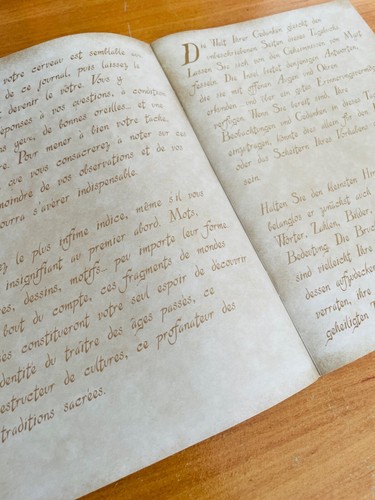 votre cerveau est semblable aux
de ce journal, puis laissez la
devenir le nôtre. Vous y
réponses à vos questions, à condition
de bonnes oreilles... et une
Pour mener à bien votre tâche,
que vous consacrerez à noter sur ces
moindre de vos observations et de vos
pourra s'avérer indispensable.
le plus infime indice, même s'il vous
insignifiant au premier abord. Mots,
dessins, motifs... peu importe leur forme
bout du compte, ces fragments de mondes
constitueront votre seul espoir de découvrir
identité du traître des âges passés, ce
destructeur de cultures, ce profanateur des
traditions sacrées.
Die Welt Ihrer Gedanken gleicht den
unbeschriebenen Seiten dieses Tagebuchs.
Lassen Sie sich von den Geheimnissen von Myst
fesseln. Die Insel bietet denjenigen Antworten,
die sie mit offenen Augen und Ohren
erkunden und über ein gutes Erinnerungsvermögen
verfügen. Wenn Sie bereit sind, Ihre
Beobachtungen und Gedanken in dieses
eingutragen, könnte dies allein für den
oder das Scheitern Ihres Vorhabens
sein.
Halten Sie den kleinsten
belanglos er zunächst auch
Wörter, Zahlen, Bilder,
Bedeutung. Die
sind vielleicht Ihre
dessen aufzudecken
verraten, ihre
geheiligten